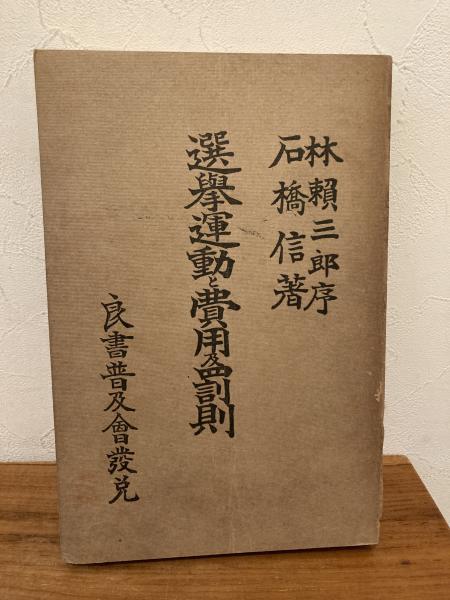 林賴三郎序
石橋信著
選擧運動と費用及罰則
良書普及會發兌